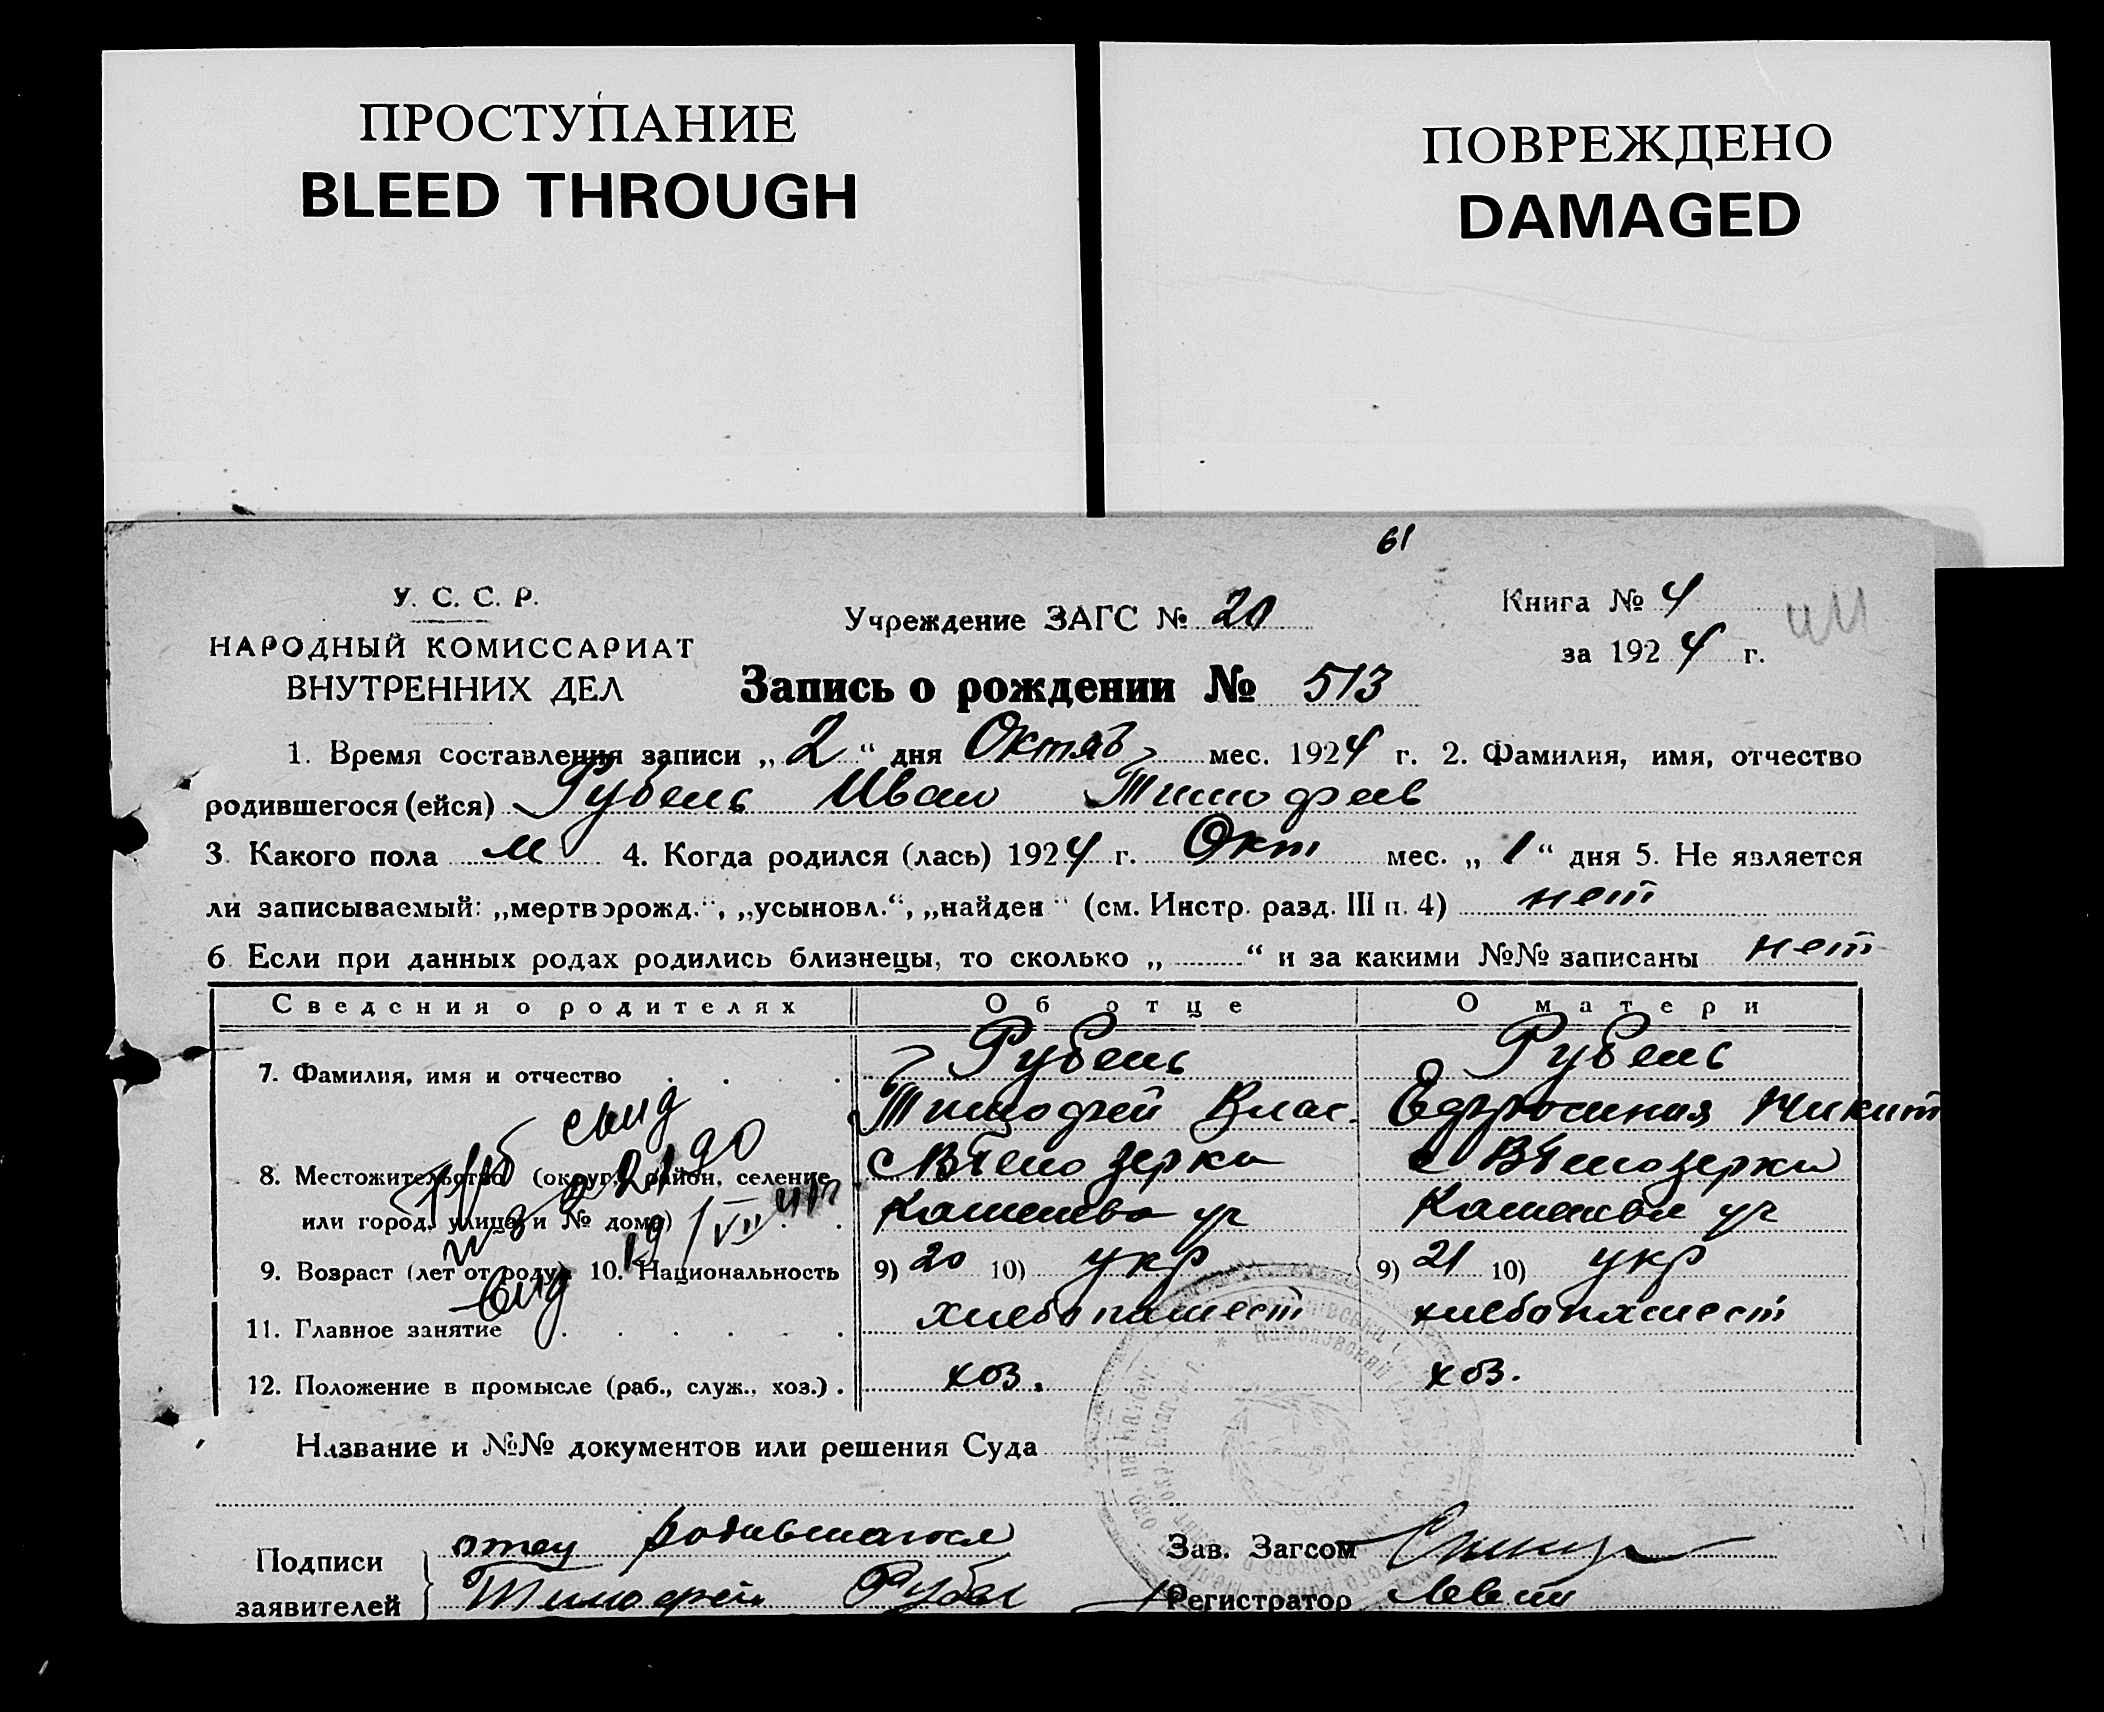 ПРОСТУПАНИЕ
BLEED THROUGH
ПОВРЕЖДЕНО
DAMAGED
61
У. С. С. Р.
НАРОДНЫЙ КОМИССАРИАТ
ВНУТРЕННИХ ДЕЛ
Учреждение ЗАГС № 20
Книга № 4
за 1924 г.
Запись о рождении № 513
1. Время составления записи „2“ дня Октяб мес. 1924 г. 2. Фамилия, имя, отчество
родившегося (ейся) Рубель Иван Тимофеев
3. Какого пола М 4. Когда родился (лась) 1924 г. Окт мес. „1“ дня 5. Не является
ли записываемый: „мертворожд.“, „усыновл.“, „найден“ (см. Инстр. разд. III п. 4) нет
6. Если при данных родах родились близнецы, то сколько „ “ и за какими №№ записаны нет
Сведения о родителях Об отце О матери
7. Фамилия, имя и отчество Рубель Рубель
Тимофей Влас. Ефросиния Никит
8. Местожительство (округ, район, селение с Белозерка с Белозерка
или город, улица и № дома)
9. Возраст (лет от роду) 10. Национальность 9) 20 10) укр 9) 21 10) укр
11. Главное занятие хлебопашест хлебопашест
12. Положение в промысле (раб., служ., хоз.) хоз. хоз.
Название и №№ документов или решения Суда
Подписи отец родившагося
заявителей Тимофей Рубель
Зав. Загсом
Регистратор